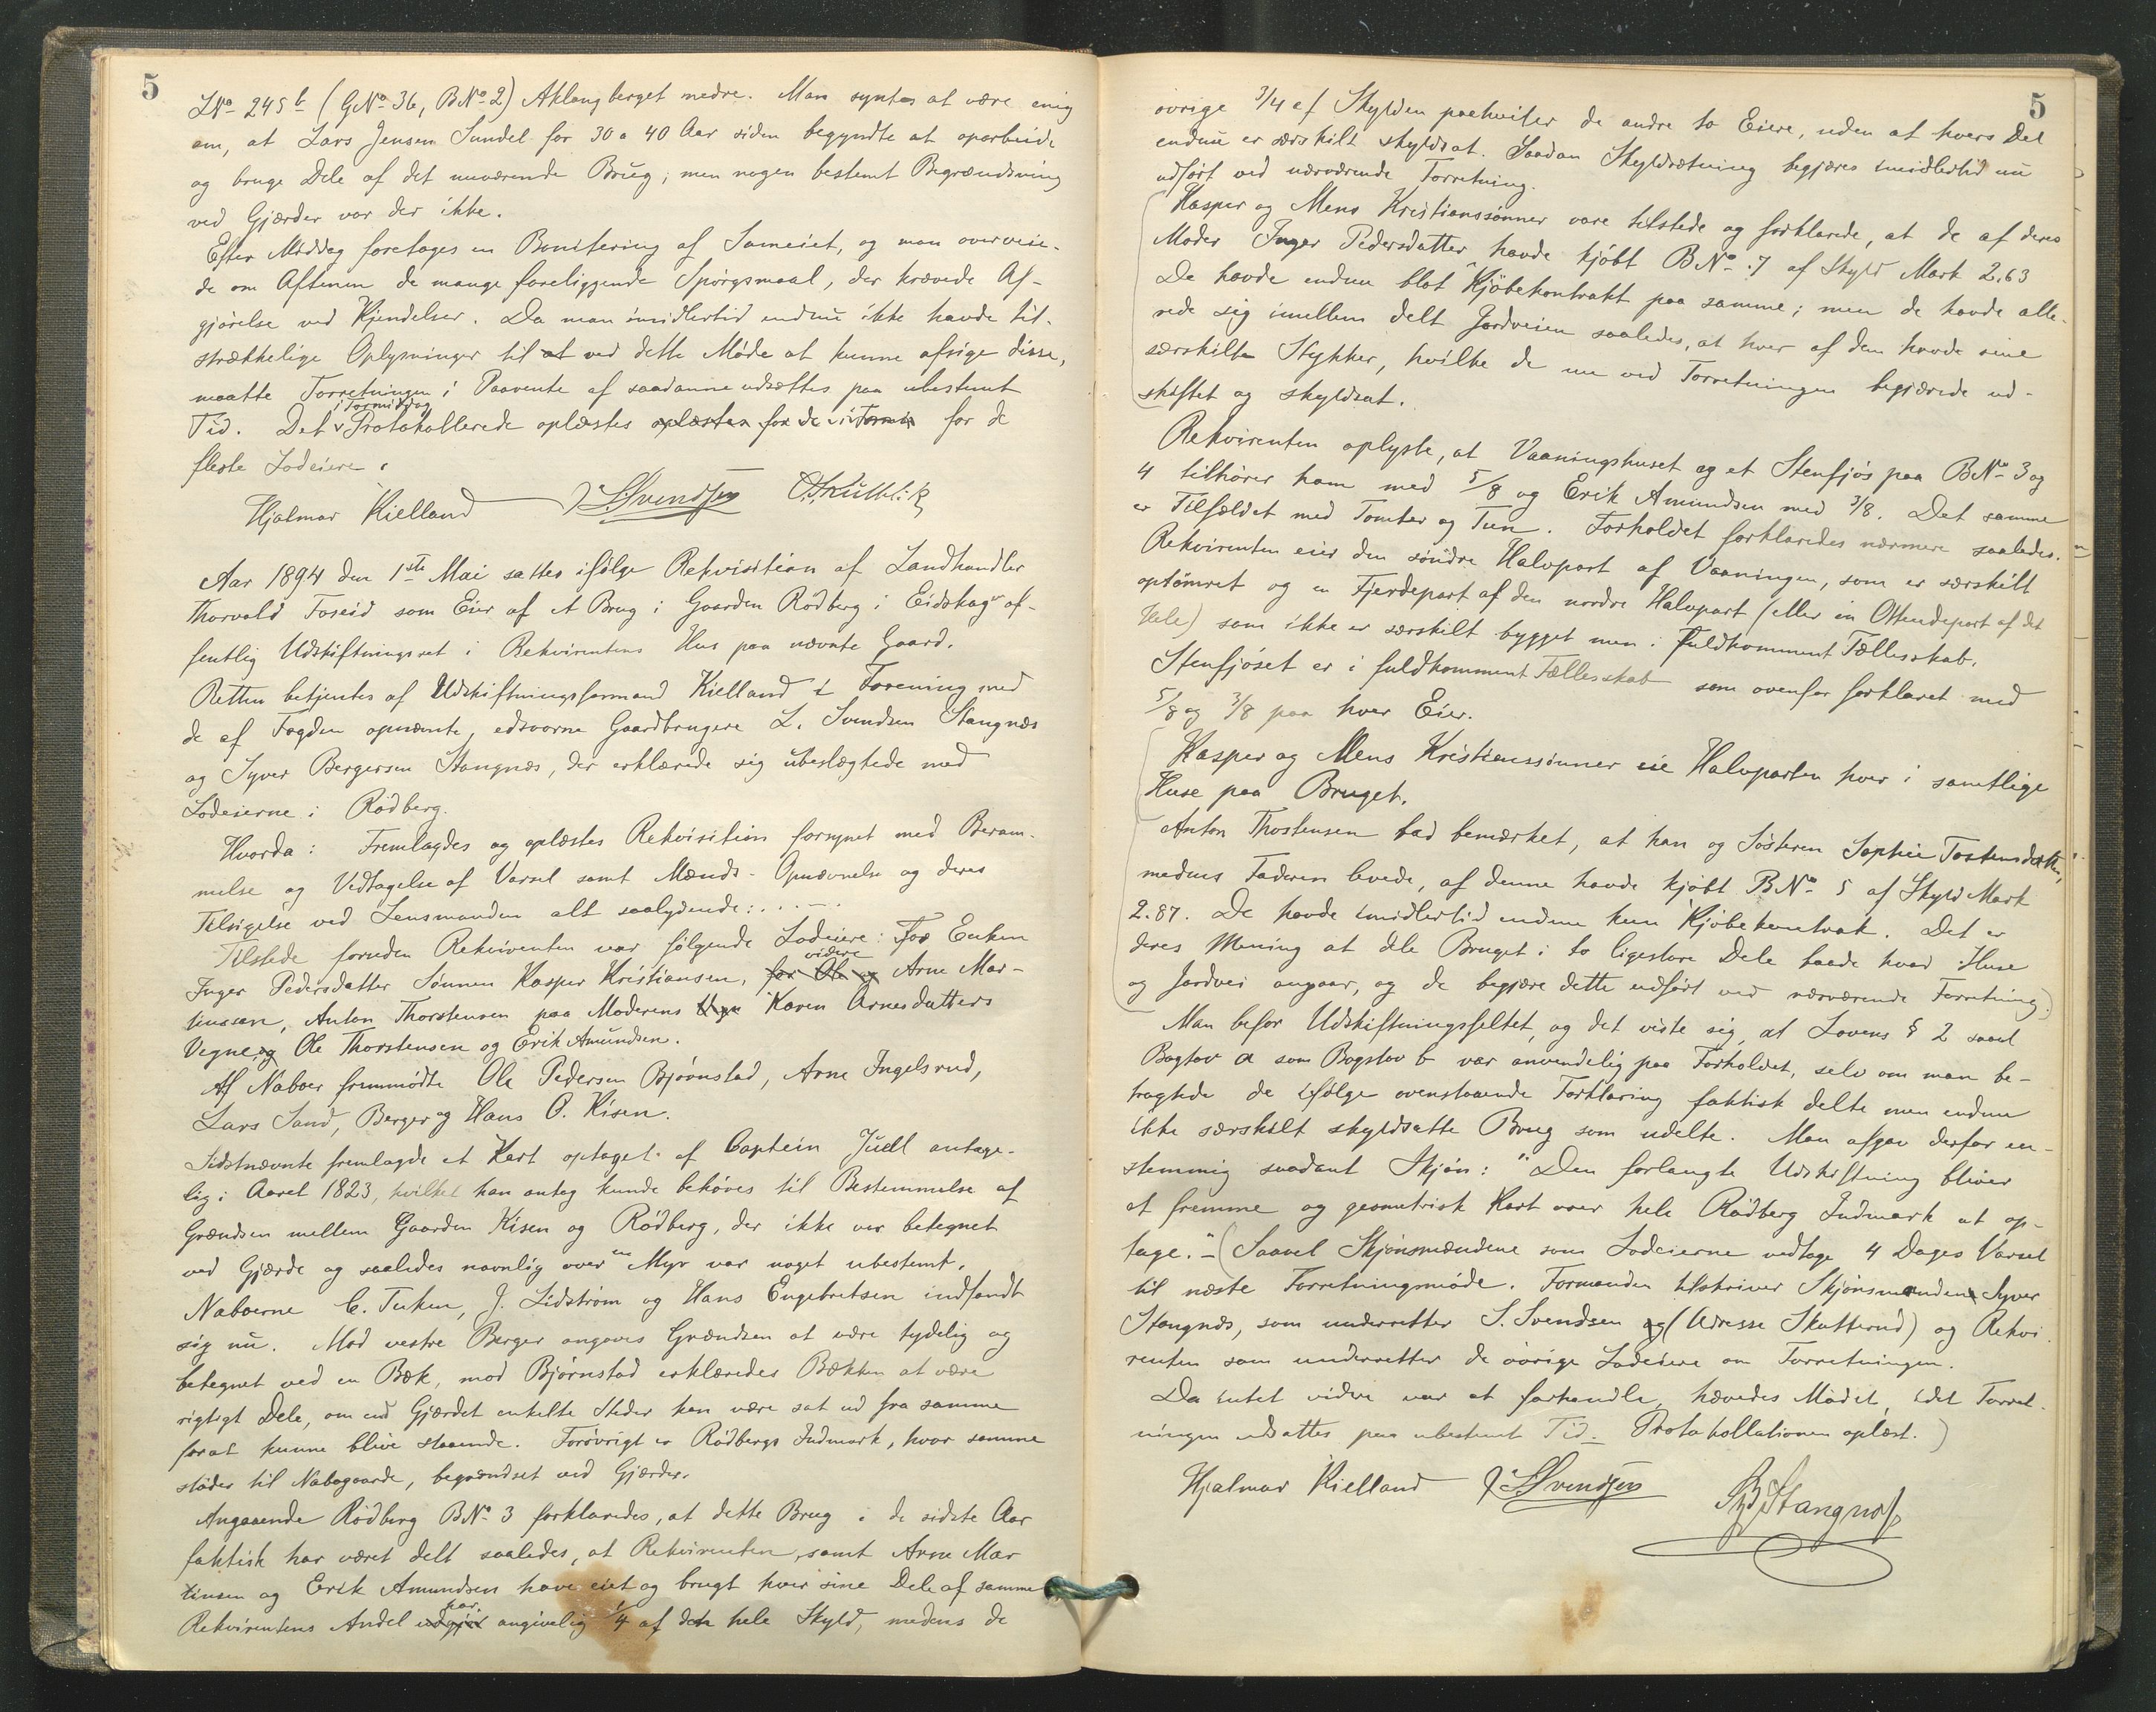 5
LNo 245 b (GNo 36, BNo 2) Aklangberget nedre. Man syntes at være enig
om, at Lars Jensen Sundel for 30 a 40 Aar siden begyndte at oparbeide
og bruge Dele af det nuværende Brug; men nogen bestemt Begrændsning
ved Gjærder var der ikke.
Efter Middag foretoges en Bonitering af Sameiet, og man overveie-
de om Aftenen de mange foreliggende Spörgsmaal, der krævede Af-
gjörelse ved Kjendelser. Da man imidlertid endnu ikke havde til-
strækkelige Oplysninger til at ved dette Möde at kunne afsige disse,
maatte Forretningen i Paavente af saadanne udsættes paa ubestemt
i Formiddag
Tid. Det Protokollerede oplæstes oplæstes for de i Form for de
fleste Lodeiere.
Hjalmar Kielland L. Svendsen
Aar 1894 den 1ste Mai sattes ifölge Rekvisition af Landhandler
Thorvald Foseid som Eier af et Brug i Gaarden Rödberg i Eidskog of-
fentlig Udskiftningsret i Rekvirentens Hus paa nævnte Gaard.
Retten betjentes af Udskiftningsformand Kielland i Forening med
de af Fogden opnævnte, edsvorne Gaardbrugere L. Svendsen Stangnæs
og Syver Bergersen Stangnæs, der erklærede sig ubeslægtede med
Lodeierne i Rödberg.
Hvorda: Fremlagdes og oplæstes Rekvisition forsynet med Beram-
melse og Vedtagelse af Varsel samt Mænds-Opnævnelse og deres
Tilsigelse ved Lensmanden alt saalydende: . . . —
Tilstede foruden Rekvirenten var fölgende Lodeiere: For Enken
videre
Inger Pedersdatter Sönnen Kasper Kristiansen, for Ole og Arne Mar-
tinssen, Anton Thorstensen paa Moderens Vegn Karen Arnesdatters
Vegne, og Ole Thorstensen og Erik Amundsen.
Af Naboer fremmödte Ole Pedersen Bjørnstad, Arne Ingelsrud,
Lars Sand, Berger og Hans O. Kisen.
Sidstnævnte fremlagde et Kart optaget af Captein Juell antage-
lig i Aaret 1823, hvilket han antog kunde behöves til Bestemmelse af
Grændsen mellem Gaarden Kisen og Rödberg, der ikke var betegnet
ved Gjærde og saaledes navnlig over en Myr var noget ubestemt.
Naboerne C. Tuken, J. Lidström og Hans Engebretsen indfandt
sig nu. Mod vestre Berger angaves Grændsen at være tydelig og
betegnet ved en Bæk, mod Bjørnstad erklæredes Bækken at være
rigtigt Dele, om end Gjærdet enkelte Steder kan være sat ud fra samme
forat kunne blive staaende. Forövrigt er Rödbergs Indmark, hvor samme
stöder til Nabogaarde, begrændset ved Gjærder.
Angaaende Rödberg BNo 3 forklaredes, at dette Brug i de sidste Aar
faktisk har været delt saaledes, at Rekvirenten, samt Arne Mar
tinsen og Erik Amundsen have eiet og brugt hver sine Dele af samme
har
Rekvirentens Andel udgjör angivelig 1/4 af den hele Skyld, medens de
5
övrige 3/4 af Skylden paahviler de andre to Eiere, uden at hvers Del
endnu er særskilt skyldsat. Saadan Skyldsætning begjæres imidlertid nu
udfört ved nærværende Forretning.
Kasper og Mens Kristianssönner vare tilstede og forklarede, at de af deres
Moder Inger Pedersdatter havde kjöbt BNo 7 af Skyld Mark 2.63
De havde endnu blot Kjöbekontrakt paa samme; men de havde alle-
rede sig imellem delt Jordveien saaledes, at hver af dem havde sine
særskilte Stykker, hvilke de nu ved Forretningen begjærede ud-
skiftet og skyldsat.
Rekvirenten oplyste, at Vaaningshuset og et Stenfjös paa BNo 3 og
4 tilhörer ham med 5/8 og Erik Amundsen med 3/8. Det samme
er Tilfældet med Tomter og Tun. Forholdet forklaredes nærmere saaledes.
Rekvirenten eier den söndre Halvpart af Vaaningen, som er særskilt
optömret og en Fjerdepart af den nordre Halvpart (eller en Ottendepart af det
Hele) som ikke er særskilt bygget men i fuldkomment Fællesskab.
Stenfjöset er i fuldkomment Fællesskab som ovenfor forklaret med
5/8 og 3/8 paa hver Eier.
Kasper og Mens Kristianssönner eie Halvparten hver i samtlige
Huse paa Bruget.
Anton Thostensen bad bemærket, at han og Sösteren Sophie Tostensdatter,
medens Faderen levede, af denne havde kjöbt BNo 5 af Skyld Mark
2.87. De havde imidlertid endnu kun Kjöbekontrak. Det er
deres Mening at dele Bruget i to ligestore Dele baade hvad Huse
og Jordvei angaar, og de begjære dette udfört ved nærværende Forretning.
Man befor Udskiftningsfeltet, og det viste sig, at Lovens § 2 saavel
Bogstav a som Bogstav b var anvendelig paa Forholdet, selv om man be-
tragtede de ifölge ovenstaaende Forklaring faktisk delte men endnu
ikke særskilt skyldsatte Brug som udelte. Man afgav derfor en-
stemmig saadant Skjön: "Den forlangte Udskiftning bliver
at fremme og geometrisk Kart over hele Rödberg Indmark at op-
tage." - (Saavel Skjönsmændene som Lodeierne vedtage 4 Dages Varsel
til næste Forretningsmöde. Formanden tilskriver Skjönsmanden Syver
Stangnæs, som underretter L. Svendsen og (Adresse Skotterud) og Rekvi-
renten som underretter de övrige Lodeiere om Forretningen.
Da intet videre var at forhandle, hævedes Mödet, idet Forret-
ningen udsattes paa ubestemt Tid. Protokollationen oplæst.)
Hjalmar Kielland L. Svendsen SB Stangnæs